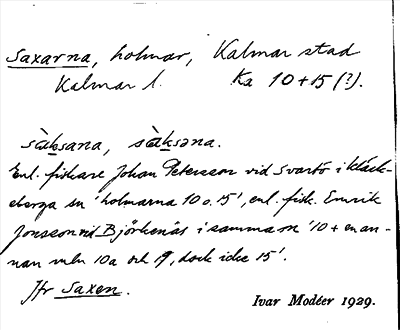 Saxarna, holmar, Kalmar stad
Kalmar l. Ka 10+15 (?).
sàksana, sàksəna.
Enl. fiskare Johan Petersson vid Svartö i Kläck-
eberga sn 'holmarna 10 o. 15', enl. fisk. Emrik
Jonsson vid Björkenäs i samma sn '10 + en an-
nan mln 10a och 19, dock icke 15'.
Jfr Saxen.
Ivar Modéer 1929.